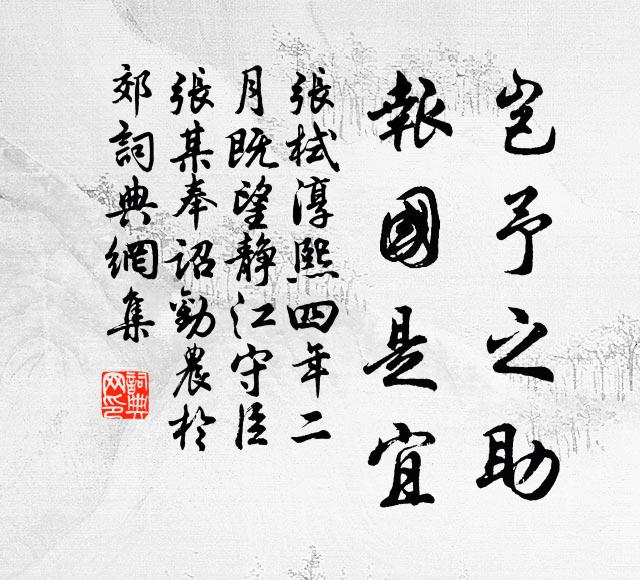 岂予之助
報國是宜
張栻淳熙四年二
月既望靜江守臣
張某奉诏勸農於
郊詞典網集
詞典
网印